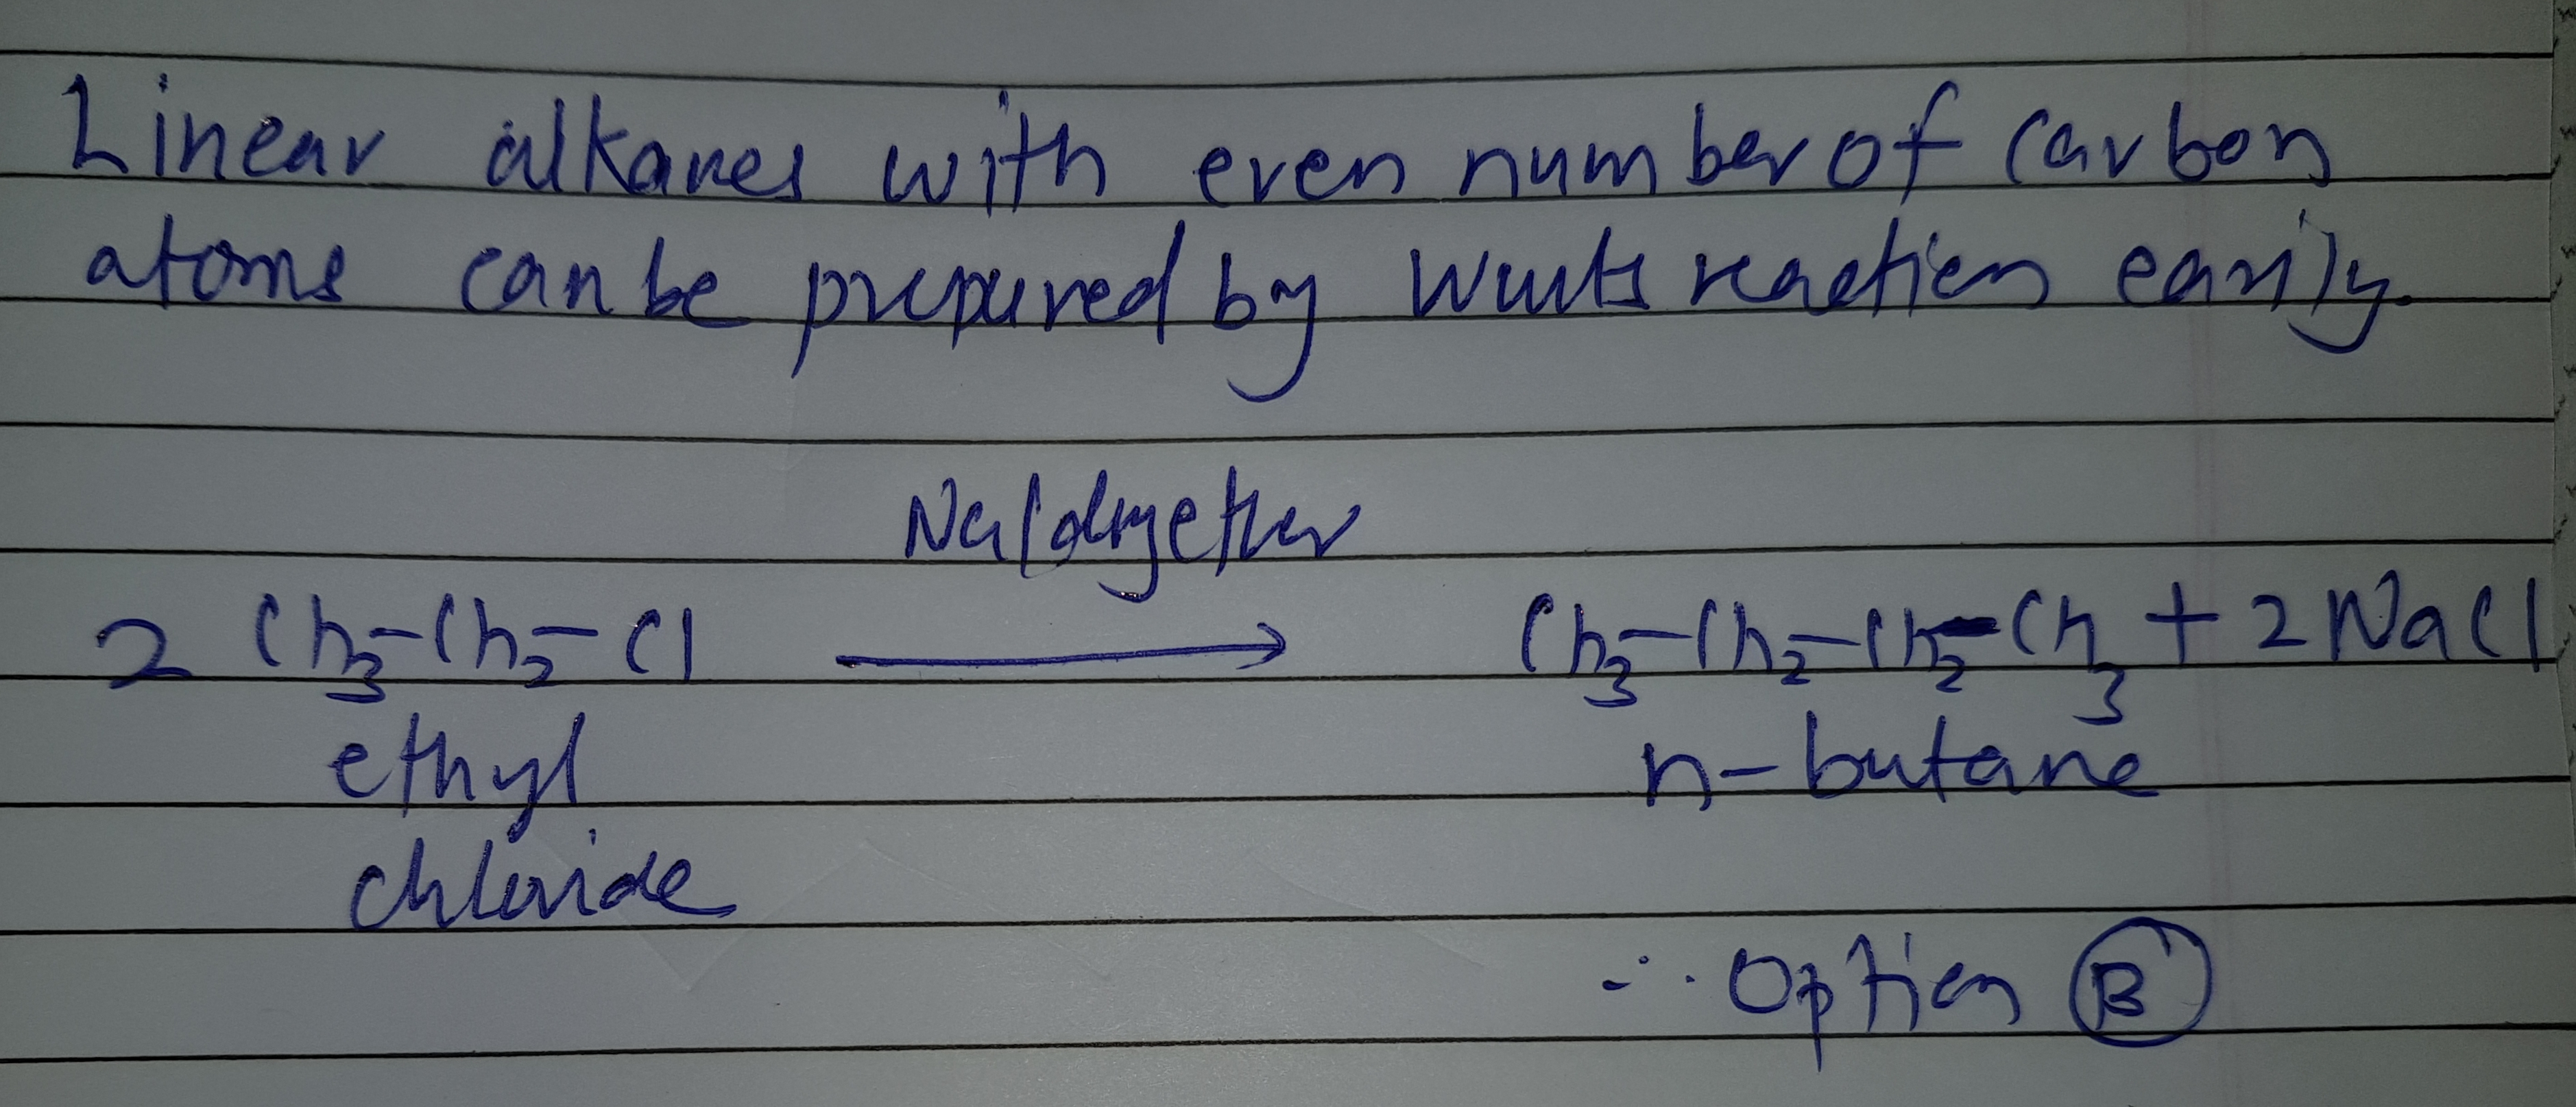 Linear alkanes with even number of carbon
atoms can be prepared by Wurts reaction easily.
Na/dryether
2 CH3-CH2-Cl → CH3-CH2-CH2-CH3 + 2NaCl
ethyl n-butane
chloride
∴ Option B